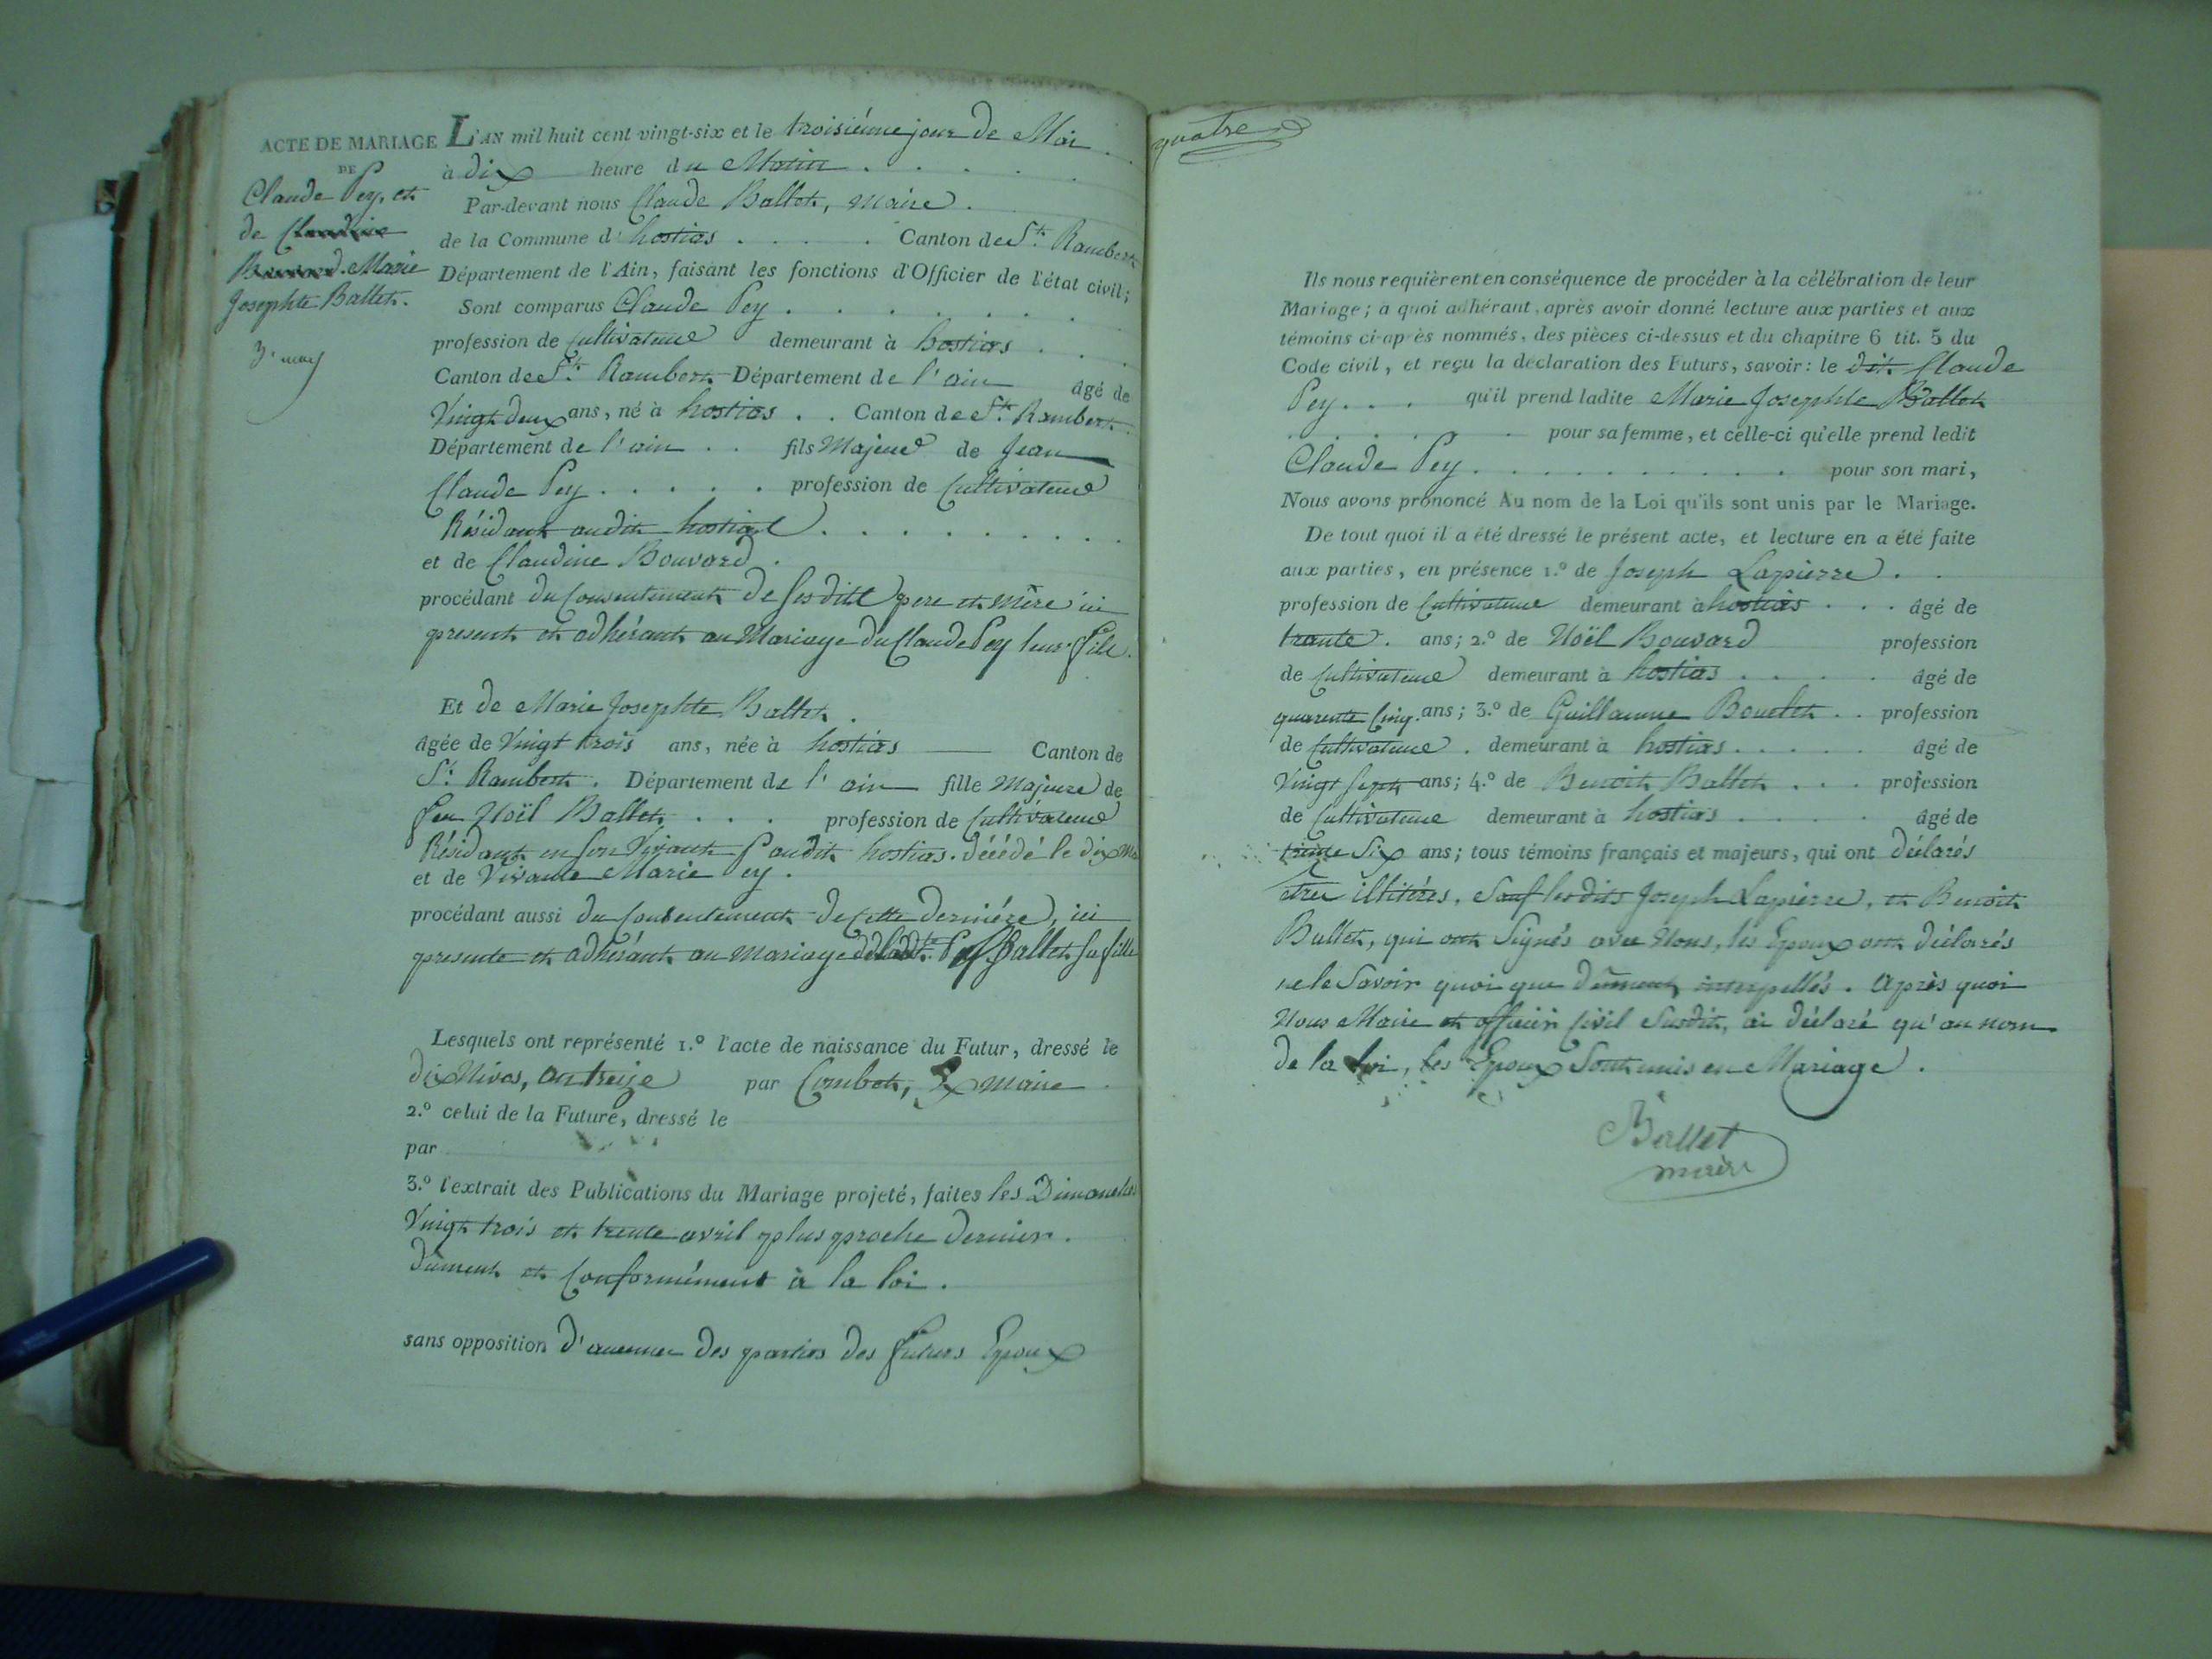 ACTE DE MARIAGE
DE
Claude Pey, et
de Claudine
Bouvard. Marie
Josephte Ballet.
3e may
L'AN mil huit cent vingt-six et le troisiéme jour de Mai
à dix heure du Matin
Par-devant nous Claude Ballet, maire
de la Commune d' hostias Canton de St. Rambert
Département de l'Ain, faisant les fonctions d'Officier de l'état civil;
Sont comparus Claude Pey
profession de Cultivateur demeurant à hostias
Canton de St. Rambert Département de l'ain âgé de
Vingt deux ans, né à hostias Canton de St. Rambert
Département de l'ain fils Majeur de Jean
Claude Pey profession de Cultivateur
Résidant audit hostias
et de Claudine Bouvard
procédant du Consentement de ses dits pere et mère ici
present et adhérant au Mariage du Claude Pey leur fils.
Et de Marie Josephte Ballet
âgée de Vingt trois ans, née à hostias Canton de
St. Rambert. Département de l'ain fille Majeure de
feu Noël Ballet profession de Cultivateur
Résidant en son Vivant audit hostias. décédé le dix
et de Vivante Marie Pey.
procédant aussi du Consentement de cette derniére, ici
presente et adhérant au mariage de ladte. Ballet sa fille
Lesquels ont représenté 1.º l'acte de naissance du Futur, dressé le
dix Nivos, an treize par Combet, Ex maire
2.º celui de la Future, dressé le
par
3.º l'extrait des Publications du Mariage projeté, faites les Dimanches
Vingt trois et trente avril plus proche dernier.
dûment et Conformément à la loi.
sans opposition d'aucune des parties des futurs Epoux
quatre
Ils nous requièrent en conséquence de procéder à la célébration de leur
Mariage; a quoi adhérant, après avoir donné lecture aux parties et aux
témoins ci-après nommés, des pièces ci-dessus et du chapitre 6 tit. 5 du
Code civil, et reçu la déclaration des Futurs, savoir: le dit Claude
Pey qu'il prend ladite Marie Josephte Ballet
pour sa femme, et celle-ci qu'elle prend ledit
Claude Pey pour son mari,
Nous avons prononcé Au nom de la Loi qu'ils sont unis par le Mariage.
De tout quoi il a été dressé le présent acte, et lecture en a été faite
aux parties, en présence 1.º de Joseph Lapierre
profession de Cultivateur demeurant à hostias âgé de
trante ans; 2.º de Noël Bouvard profession
de Cultivateur demeurant à hostias âgé de
quarente Cinq ans; 3.º de Guillaume Bouclet profession
de Cultivateur demeurant à hostias âgé de
Vingt sept ans; 4.º de Benoit Ballet profession
de Cultivateur demeurant à hostias âgé de
trente Six ans; tous témoins français et majeurs, qui ont déclarés
être illitérés, Sauf les dits Joseph Lapierre, et Benoit
Ballet, qui ont Signés avec Nous, les Epoux ont déclarés
ne le Savoir quoi que dûment interpellés. Après quoi
Nous Maire et officier Civil Susdit, ai déclaré qu'au nom
de la loi, les Epoux Sont unis en Mariage.
Ballet
maire